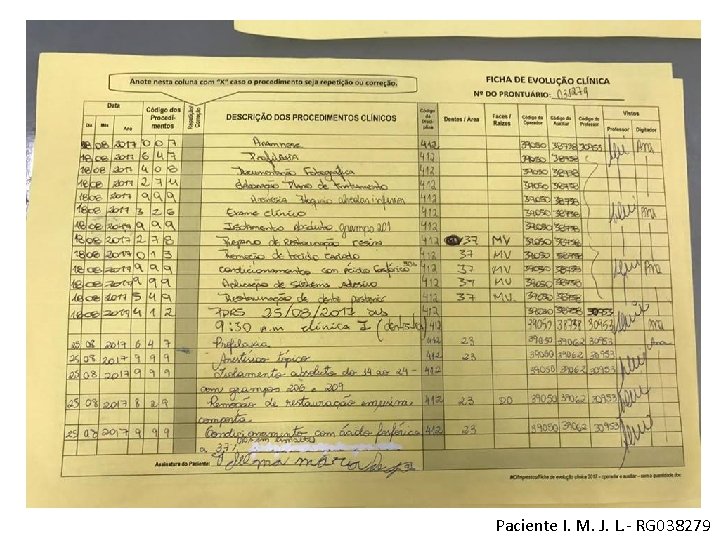 Anote nesta coluna com "X" caso o procedimento seja repetição ou correção.
FICHA DE EVOLUÇÃO CLÍNICA
Nº DO PRONTUÁRIO: 038279
Data Código dos Procedimentos Repetição Correção DESCRIÇÃO DOS PROCEDIMENTOS CLÍNICOS Código da Disciplina Dentes / Área Faces / Raízes Código do Operador Código do Auxiliar Código do Professor Vistos
Dia Mês Ano Professor Digitador
18 08 2017 007 Anamnese 412 39050 38738 30953
18 08 2017 647 Profilaxia 412 39050 38738
18 08 2017 408 Documentação Fotográfica 412 39050 38738
18 08 2017 274 elaboração Plano de tratamento 412 39050 38738
18 08 2017 999 Anestesia Bloqueio alveolar inferior 412 39050 38738
18 08 2017 326 Exame clínico 412 39050 38738
18 08 2017 999 Isolamento absoluto grampo 201 412 39050 38738
18 08 2017 278 Preparo de Restauração resina 412 37 MV 39050 38738
18 08 2017 013 Remoção de tecido cariado 412 37 MV 39050 38738
18 08 2017 999 condicionamento com ácido fosfórico 412 37 MV 39050 38738
18 08 2017 999 Aplicação de Sistema adesivo 412 37 MV 39050 38738
18 08 2017 549 Restauração de dente posterior 412 37 MV 39050 38738
18 08 2017 412 25/08/2017 39050 38738 30953
9:30 clínica I 412 39050 38738 30953
25 08 2017 647 Profilaxia 412 23 39050 39062 30953
25 08 2017 999 Anestésico tópico 412 23 39050 39062 30953
25 08 2017 999 Isolamento absoluto do 14 ao 24 412 39050 39062 30953
com grampos 206 e 209
25 08 2017 829 Remoção de restauração em resina 412 23 39050 39062 30953
composta
25 08 2017 999 Condicionamento com ácido fosfórico 412 23 39050 39062 30953
a 37%
Assinatura do Paciente:
Paciente I. M. J. L.- RG038279